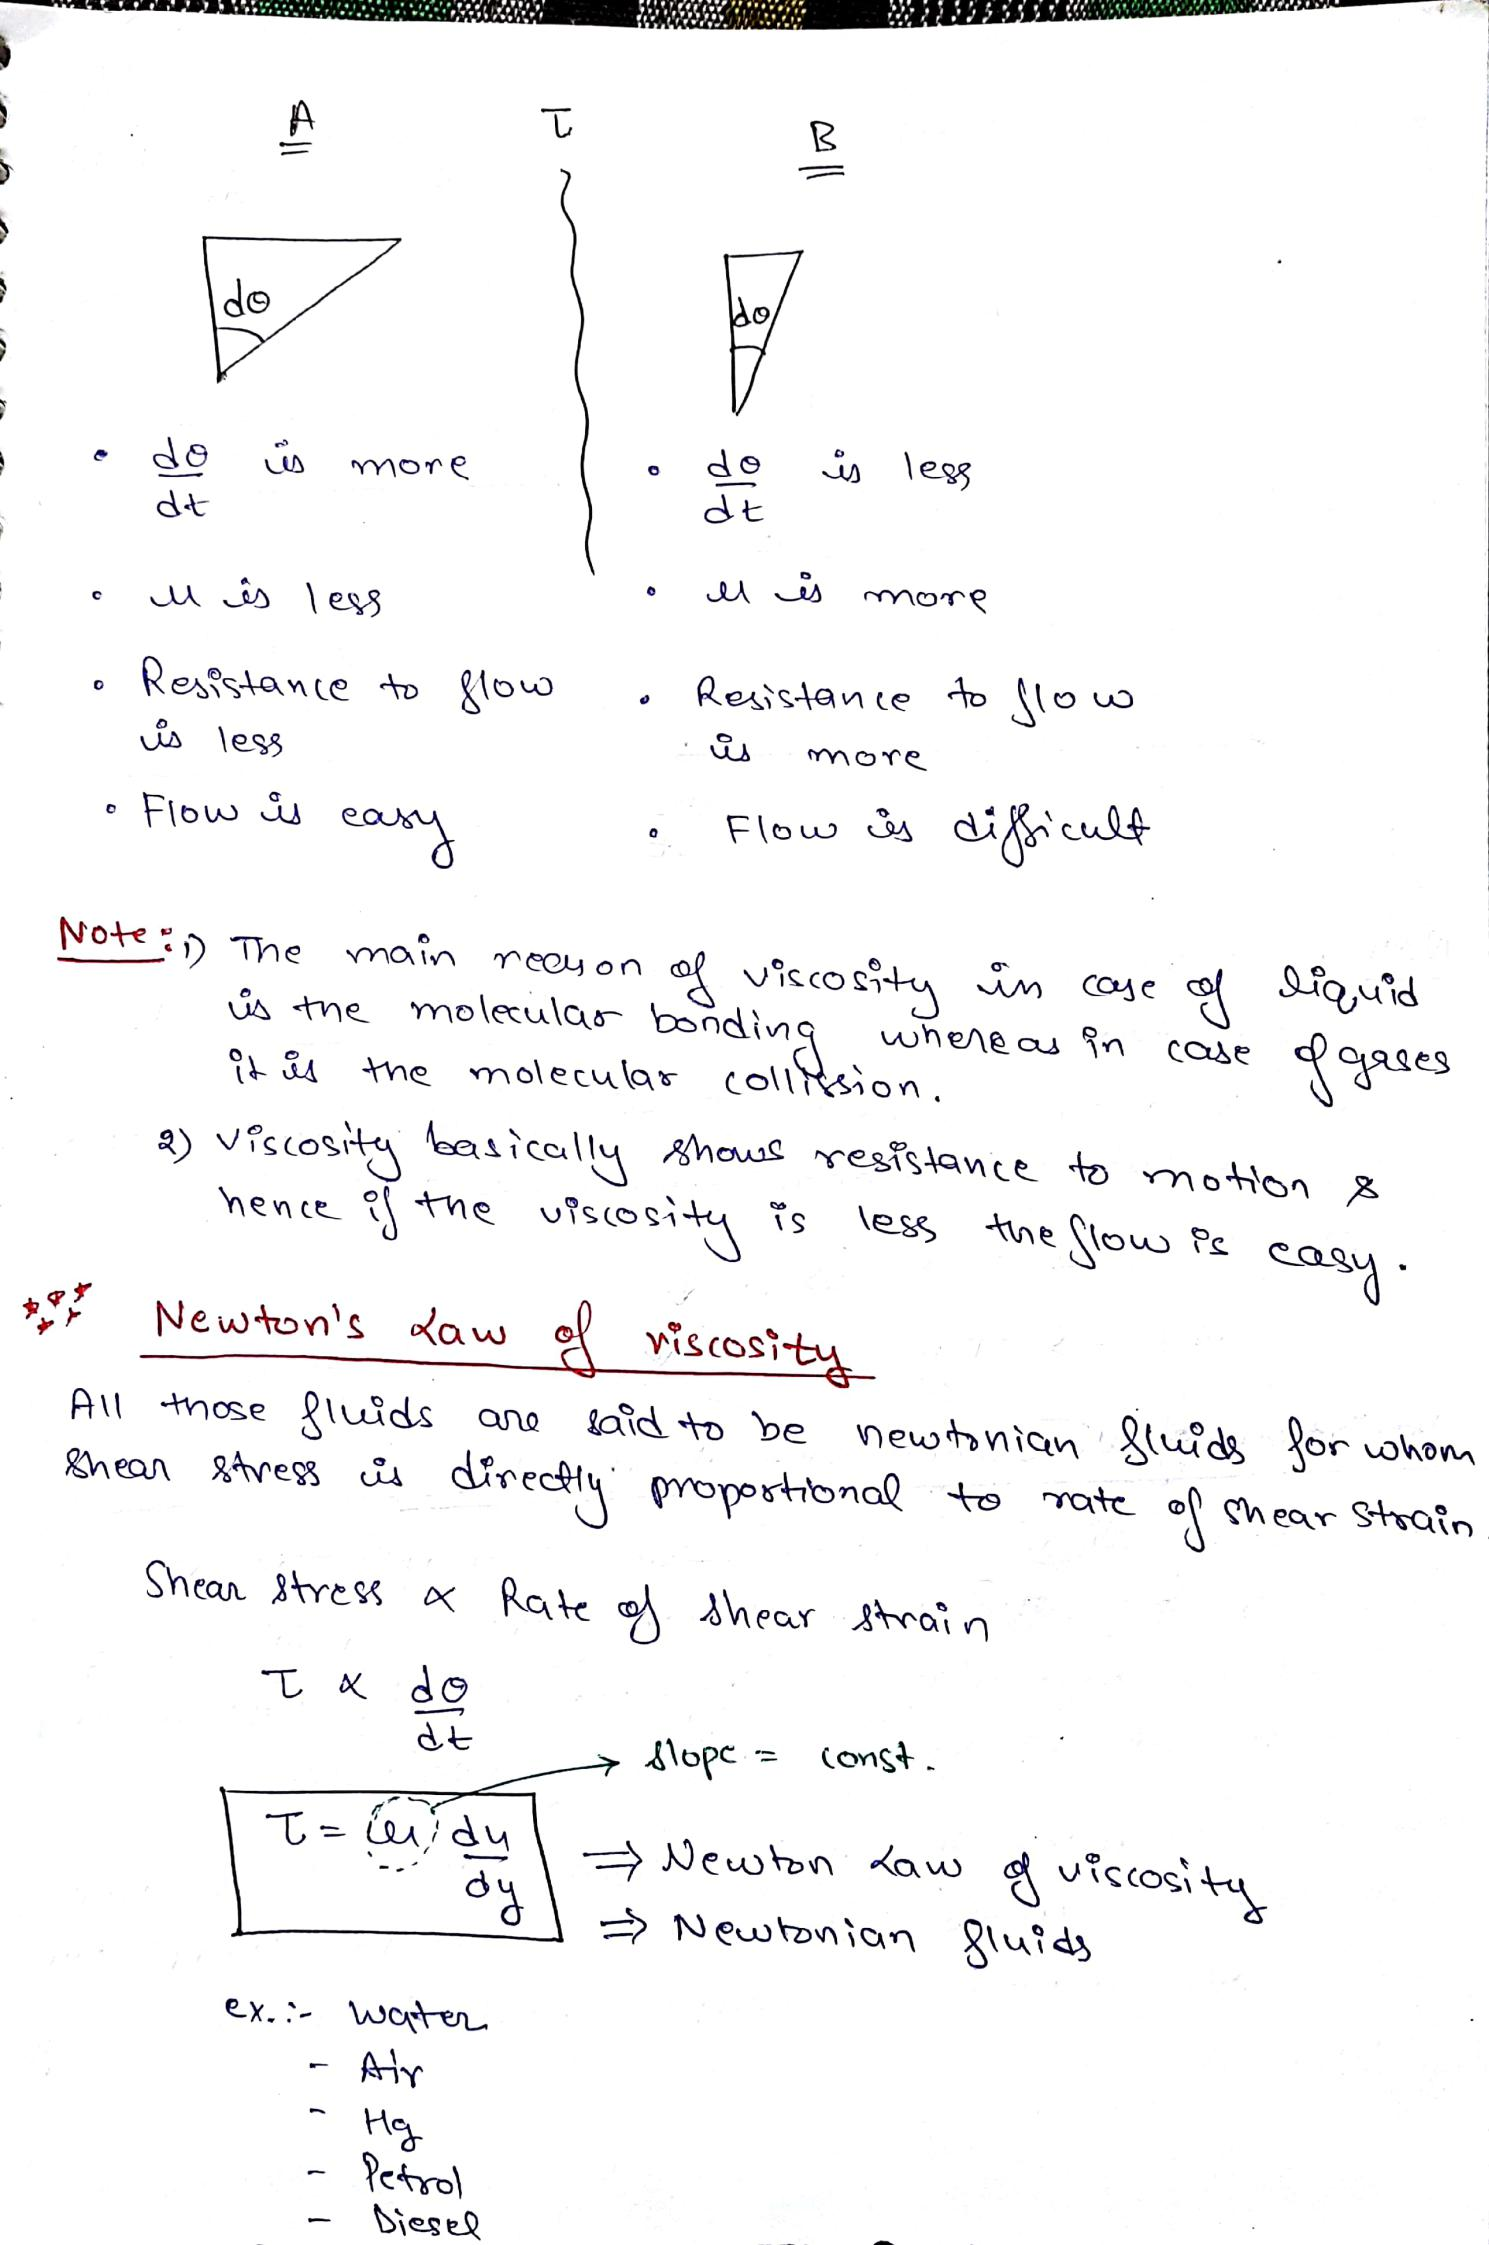 A
τ
B
dθ
dθ
• dθ/dt is more
• μ is less
• Resistance to flow
is less
• Flow is easy
• dθ/dt is less
• μ is more
• Resistance to flow
is more
• Flow is difficult
Note: 1) The main reason of viscosity in case of liquid
is the molecular bonding whereas in case of gases
it is the molecular collission.
2) viscosity basically shows resistance to motion &
hence if the viscosity is less the flow is easy.
Newton's Law of viscosity
All those fluids are said to be newtonian fluids for whom
shear stress is directly proportional to rate of shear strain
Shear stress ∝ Rate of shear strain
τ ∝ dθ/dt
→ slope = const.
τ = μ du/dy
⇒ Newton Law of viscosity
⇒ Newtonian fluids
ex.:- Water
- Air
- Hg
- Petrol
- Diesel